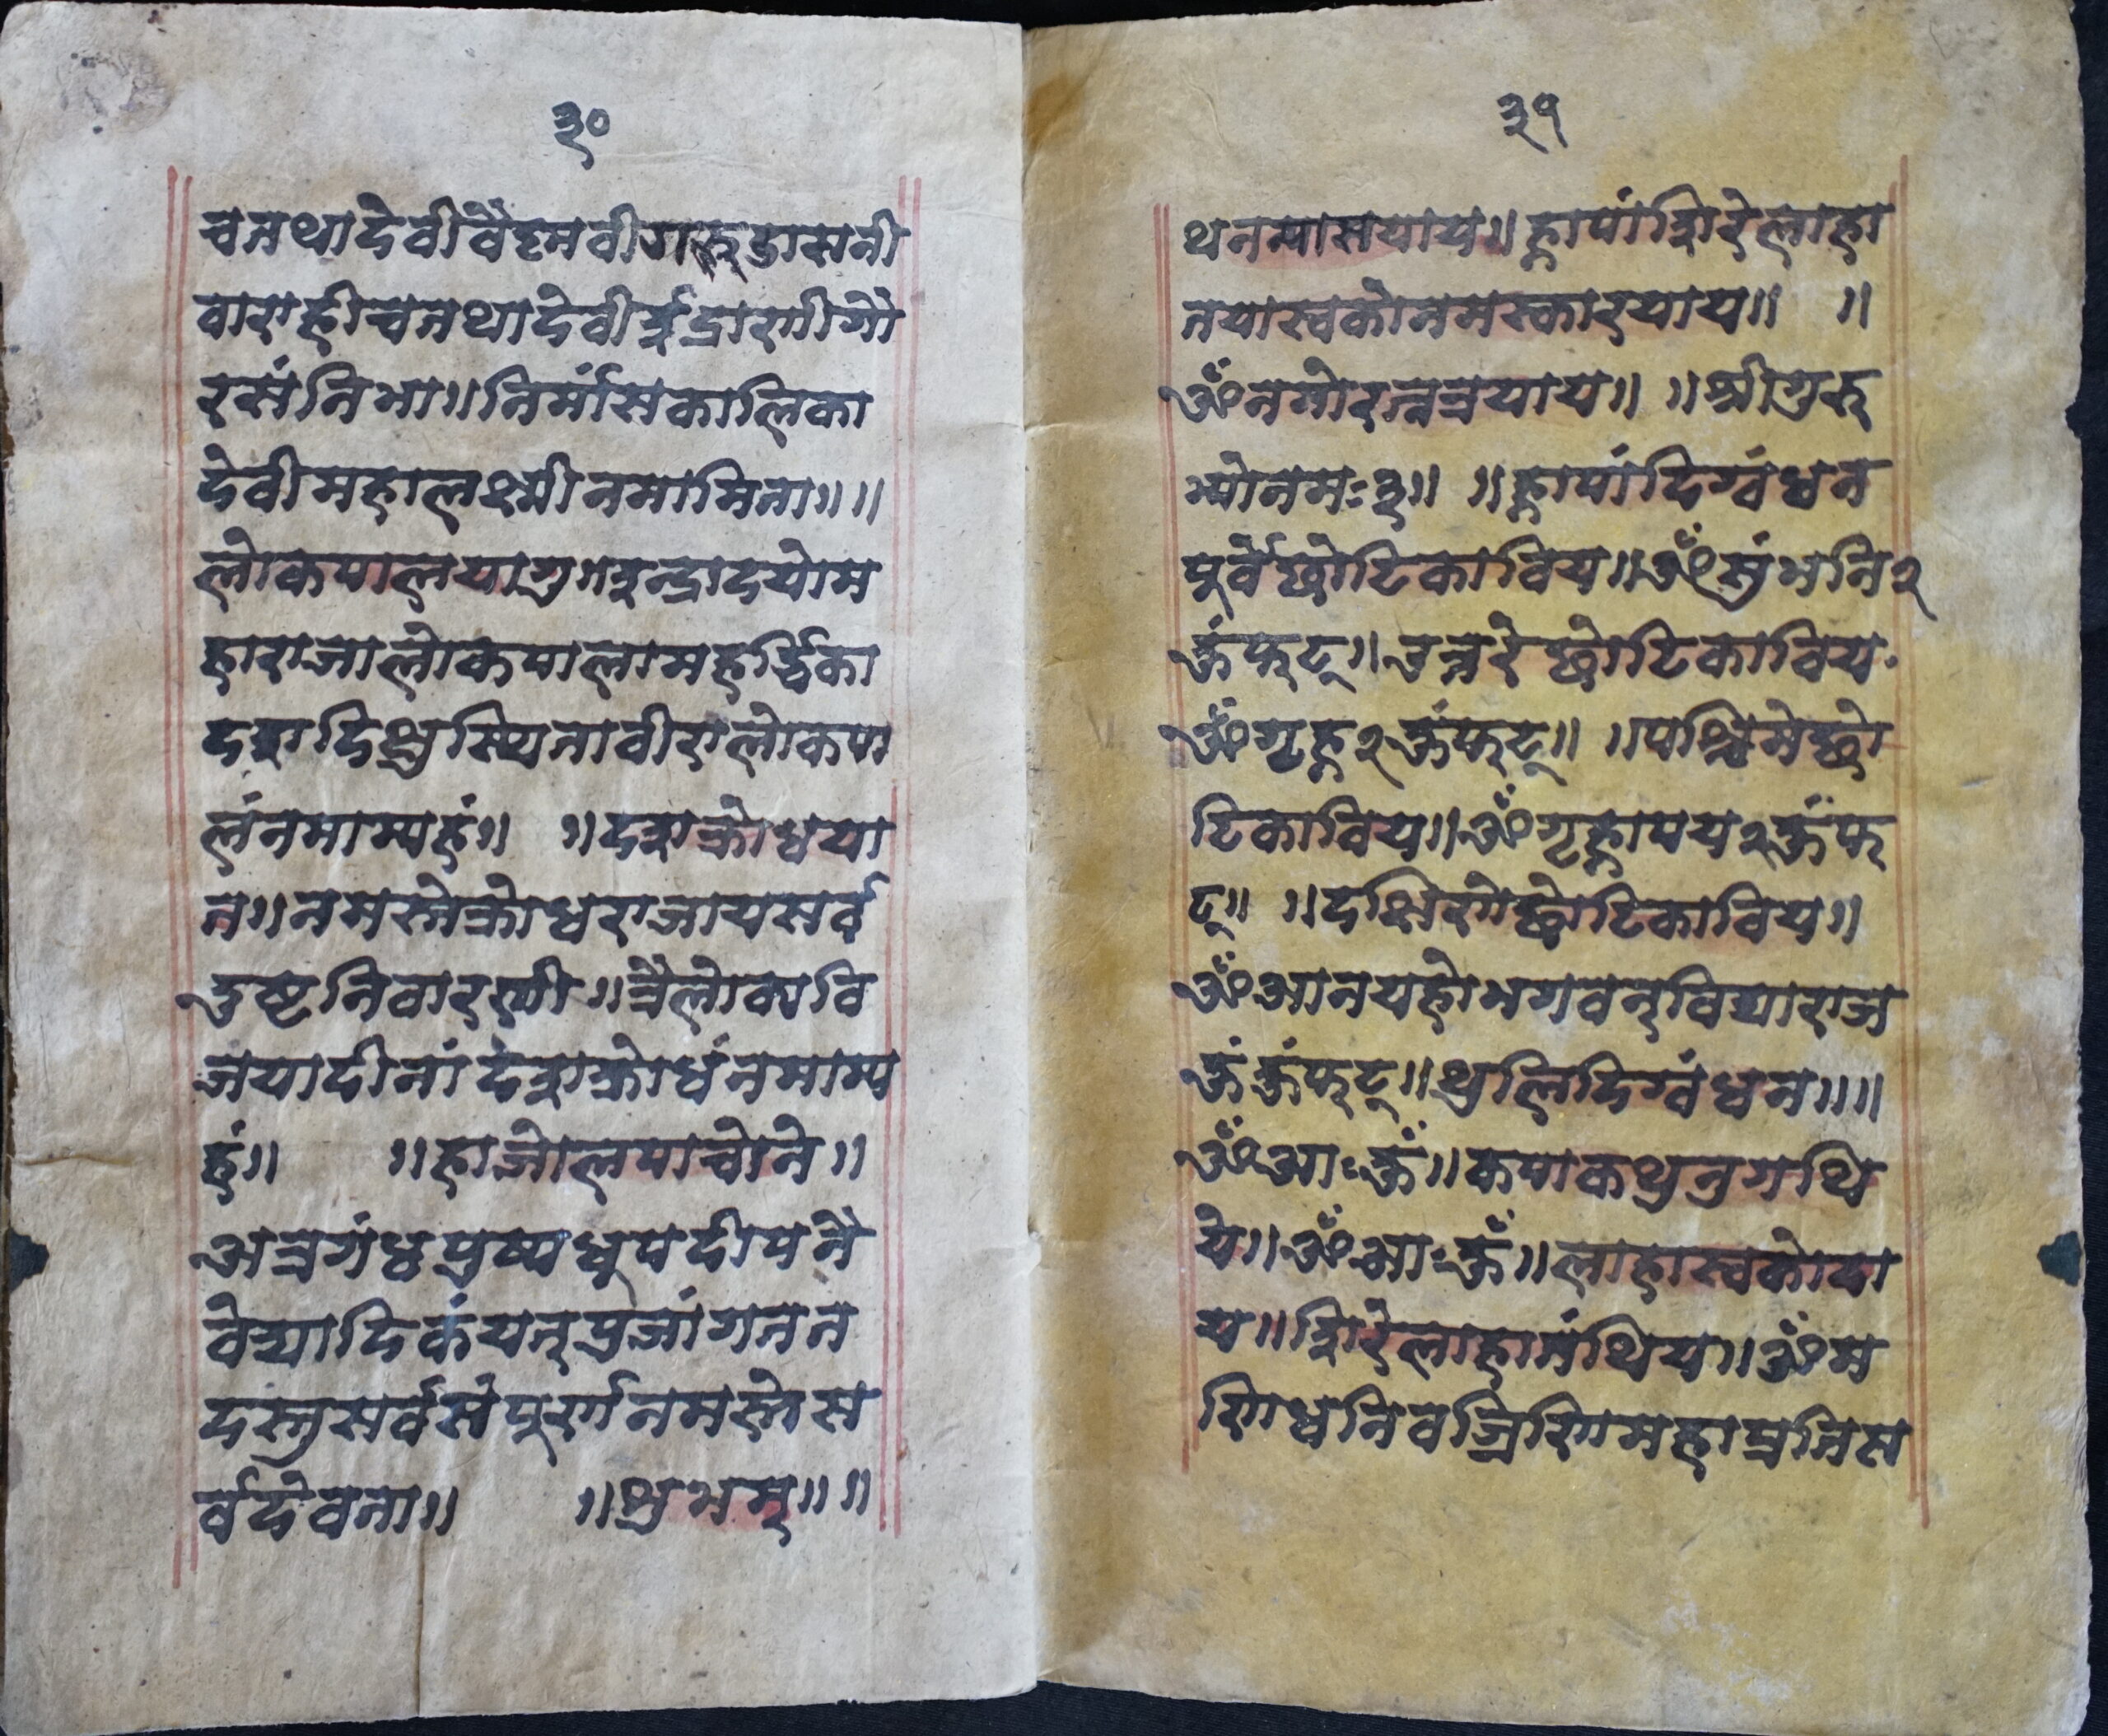 ३०
चतथादेवीवैष्मवीगरूडासनी
वाराहीचतथादेवीईद्राणीगौ
रसंनिभा॥निर्मांसकालिका
देवीमहालक्ष्मीनमामिता॥॥
लोकपालयागु॥इन्द्रादयोम
हाराजालोकपालामहर्द्धिका
दशदिशुस्थितावीरालोकपा
लंनमाम्यहं॥ ॥दशक्रोधया
त॥नमस्तेक्रोधराजायसर्व
दुष्टनिवारणी॥त्रैलोक्यवि
जयादीनांदशक्रोधंनमाम्य
हं॥ ॥हाजोलपाचोने॥
अत्रगंधपुष्पधुपदीपनै
वेद्यादिकंयत्पुजांगतत
दस्तुसर्वसंपुर्णनमस्तेस
र्वदेवता॥ ॥शुभम्॥॥
३१
थनन्यासयाय॥ह्नापांशिरेलाहा
तयास्वकोनमस्कारयाय॥ ॥
ॐनमोरत्नत्रयाय॥ ॥श्रीगुरू
भ्योनमः३॥ ॥ह्नापांदिग्वंधन
पूर्वेछोटिकाविय॥ॐसुंभनि२
हूँफट्॥उत्तरेछोटिकाविय॰
ॐगृह्न२हूँफट्॥ ॥पश्चिमेछो
टिकाविय॥ॐगृह्नापय२हूँफ
ट्॥ ॥दक्षिणेछोटिकाविय॥
ॐआनयहोभगवन्विद्याराज
हूँहूँफट्॥थुलिदिग्वंधन॥॥
ॐआःहूँ॥कपाकथुनुगथि
ये॥ॐआःहूँ॥लाहास्वकोदा
य॥शिरेलाहातंथिय॥ॐम
णिधनिवज्रिणिमहाप्रतिस